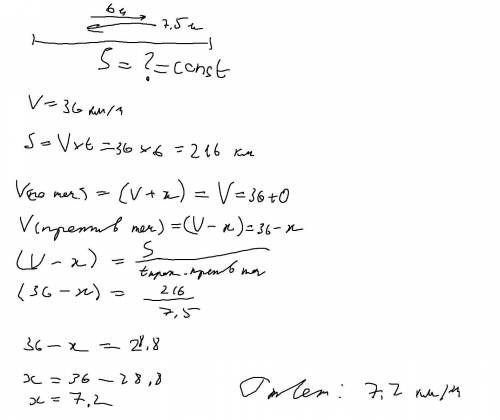 6ч
7,5ч
S = ? = const
V = 36 км/ч
S = V×t = 36 × 6 = 216 км
V(по теч) = (V + x) = V = 36 + 0
V(против теч) = (V - x) = 36 - x
(V - x) = S / tпрох. против теч
(36 - x) = 216 / 7,5
36 - x = 28,8
x = 36 - 28,8
x = 7,2
Ответ: 7,2 км/ч